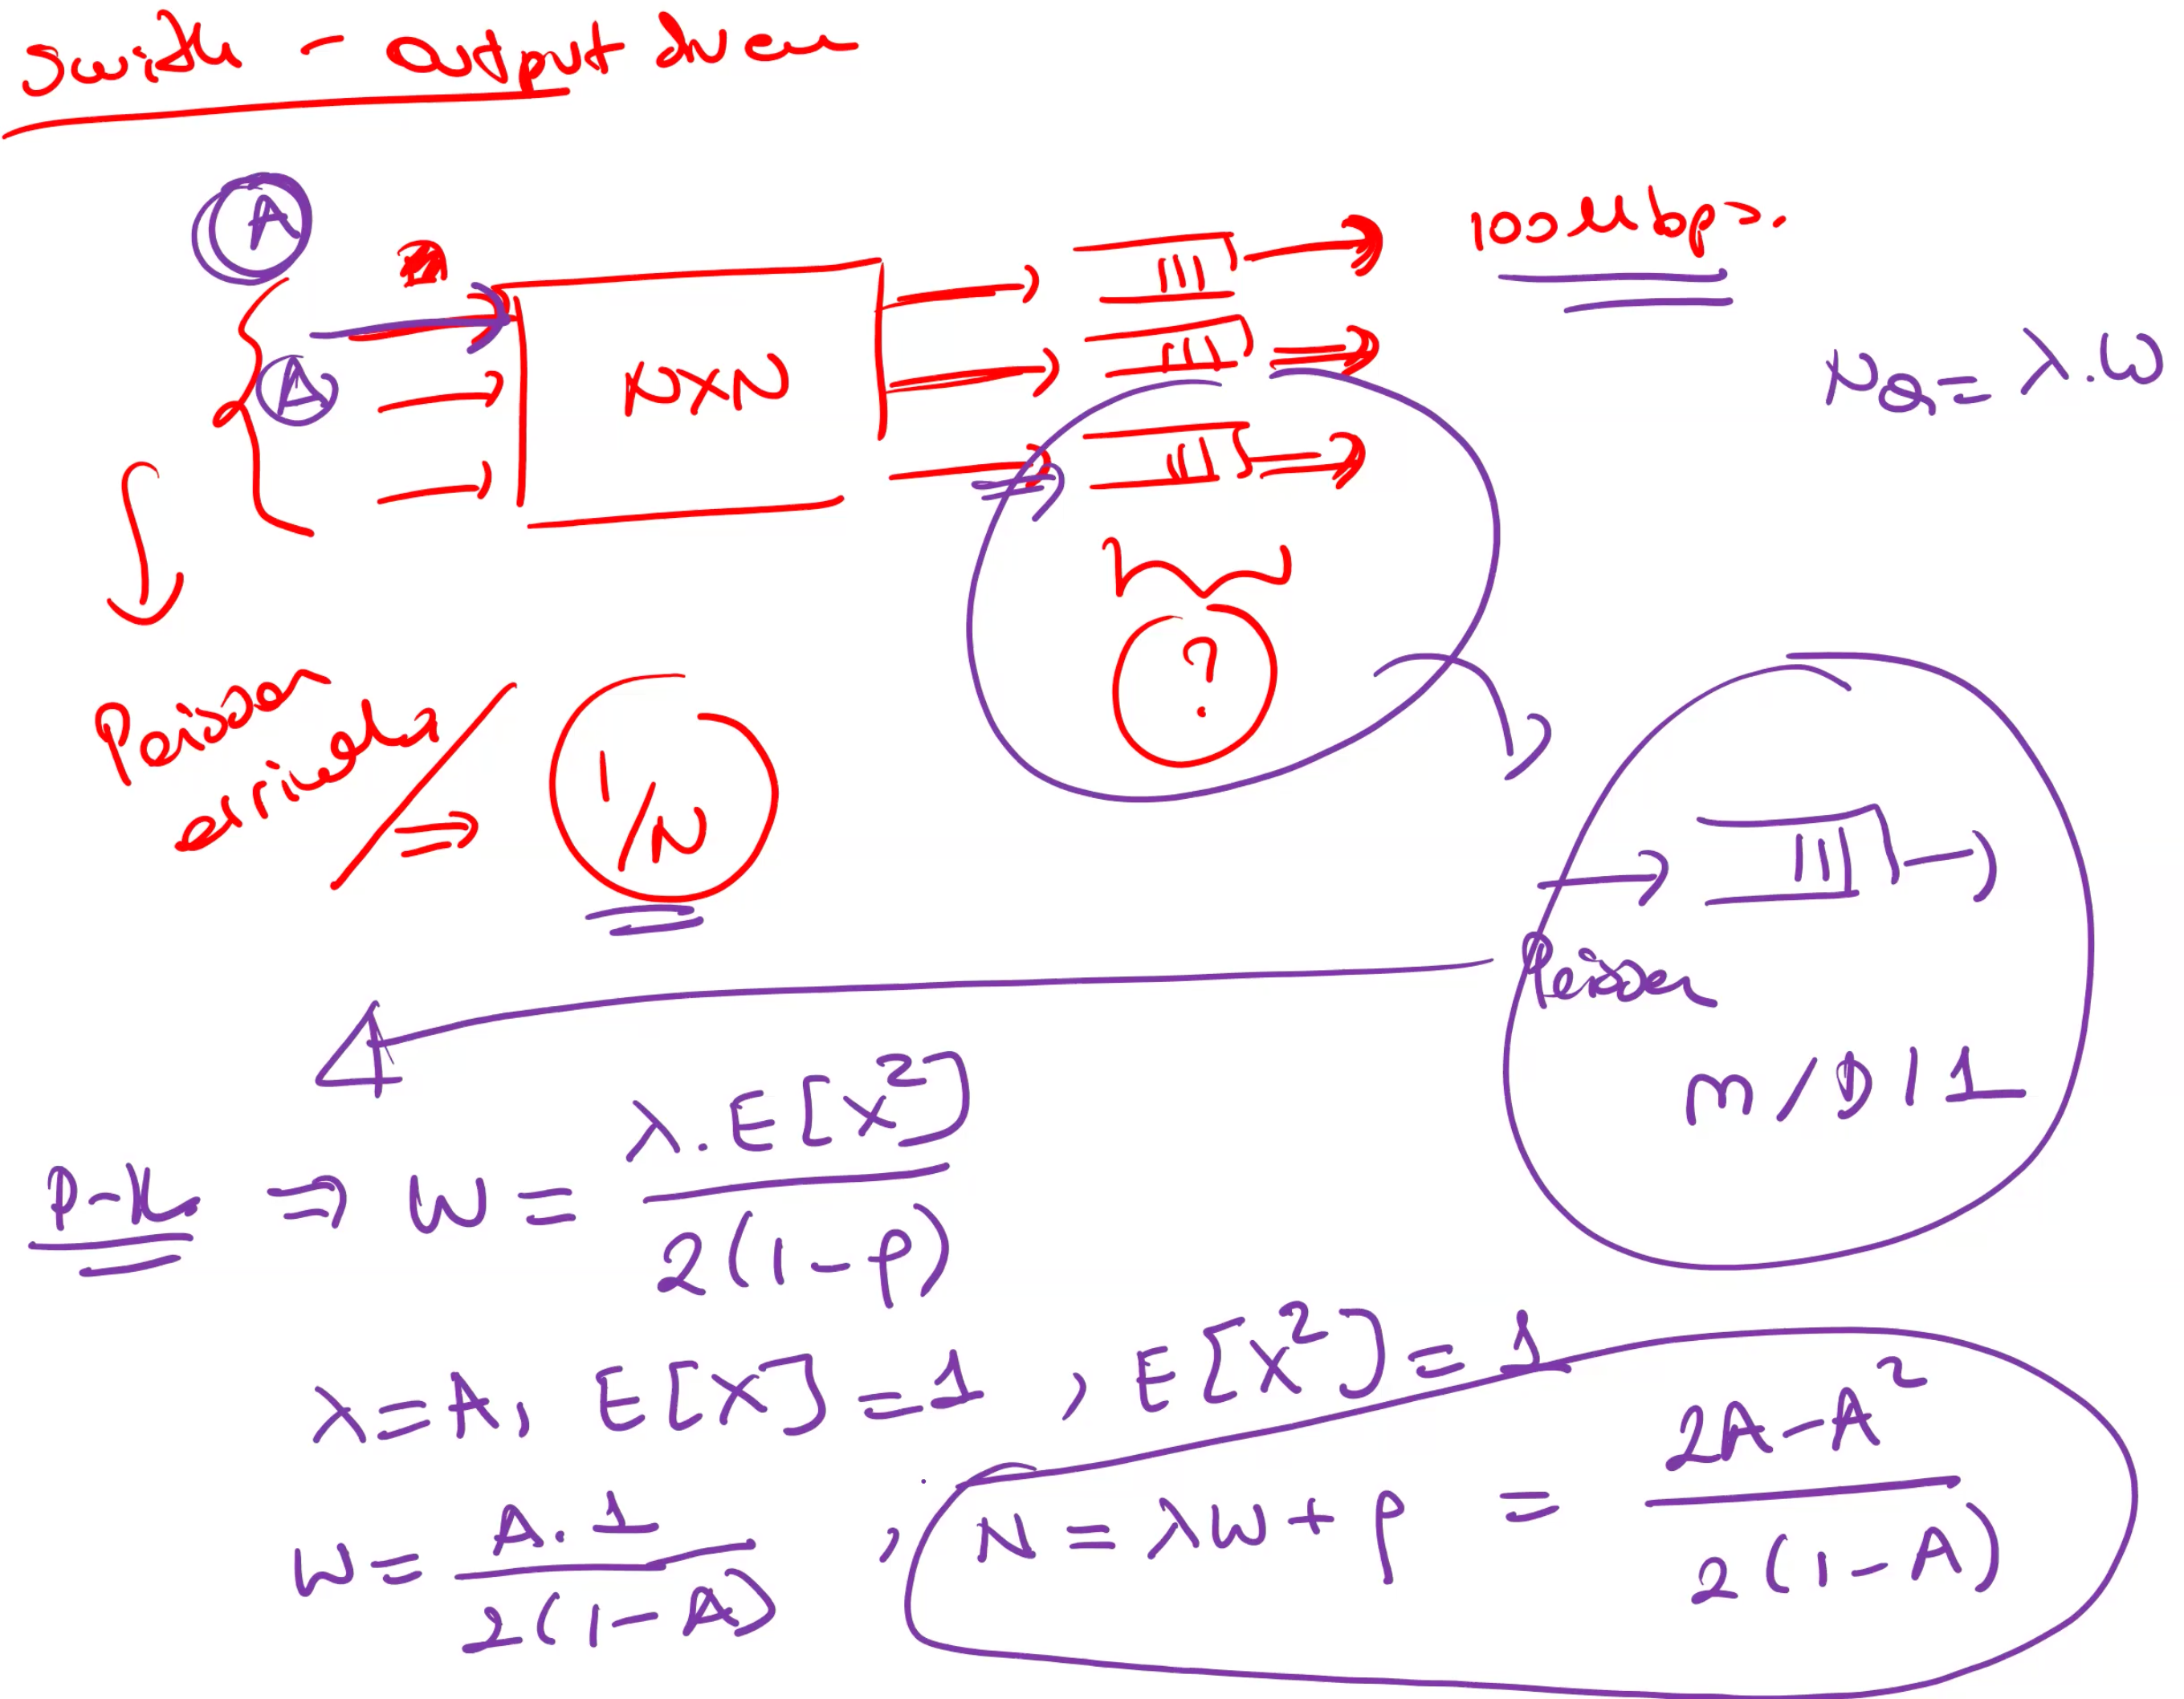 Switch - output queue
A
100 Mbps.
N×N
N_Q = λ.W
A
?
Poisson
arrivals
⇒ 1/N
Poisson
M/D/1
P-K ⇒ W = λ.E[X²] / 2(1-ρ)
λ=A, E[X]=1, E[X²]=1
W = A.1 / 2(1-A), N = λW+ρ = 2A-A² / 2(1-A)